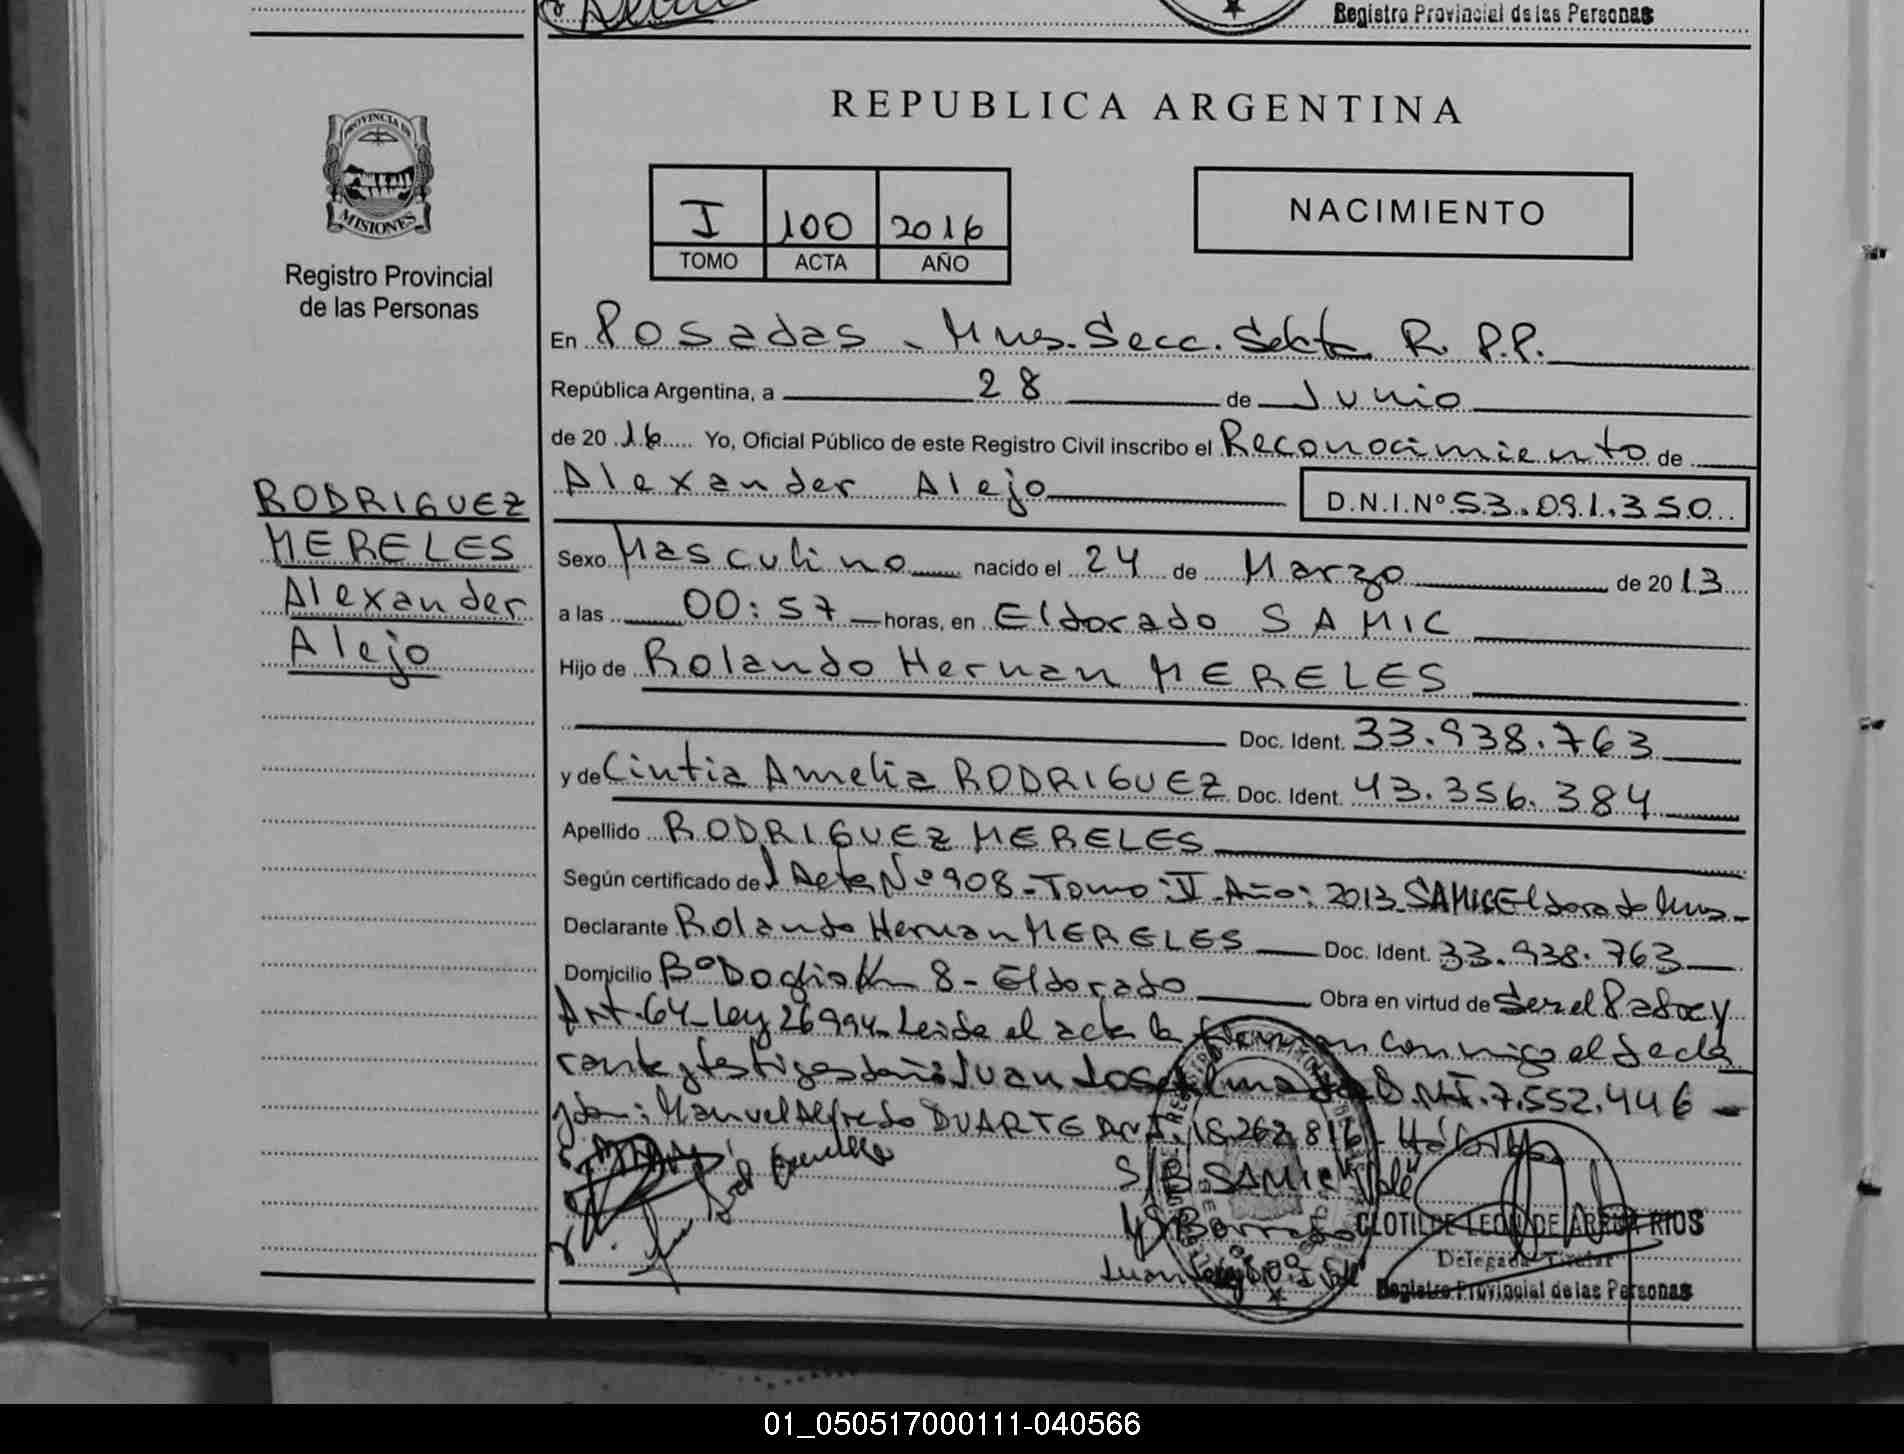 Registro Provincial de las Personas
REPUBLICA ARGENTINA
PROVINCIA DE
MISIONES
Registro Provincial
de las Personas
I 100 2016
TOMO ACTA AÑO
NACIMIENTO
RODRIGUEZ
MERELES
Alexander
Alejo
En Posadas - Mnes. Secc. Sexta R. P.P.
República Argentina, a 28 de Junio
de 2016 Yo, Oficial Público de este Registro Civil inscribo el Reconocimiento de
Alexander Alejo D.N.I.Nº 53.091.350
Sexo Masculino nacido el 24 de Marzo de 2013
a las 00:57 horas, en Eldorado SAMIC
Hijo de Rolando Hernan MERELES
Doc. Ident. 33.938.763
y de Cintia Amelia RODRIGUEZ Doc. Ident. 43.356.384
Apellido RODRIGUEZ MERELES
Según certificado de Acta Nº 908 - Tomo: V - Año: 2013 SAMIC Eldorado Mnes -
Declarante Rolando Hernan MERELES Doc. Ident. 33.938.763
Domicilio Bº Doglio Km 8 - Eldorado Obra en virtud de Ser el Padre y
Art. 64 - Ley 26994 - Leida el acta la firman conmigo el decla
rante y testigos Juan Jose D.N.I. 7.552.446 -
y don: Manuel Alfredo DUARTE DNI. 18.262.816 -
S/B SAMIC Vale
CLOTILDE LEON DE RIOS
Delegada Titular
Registro Provincial de las Personas
01_050517000111-040566